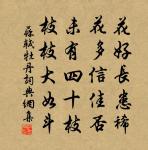 花好長患稀
花多信佳否
未有四十枝
枝枝大如斗
蘇軾牡丹詞典網集